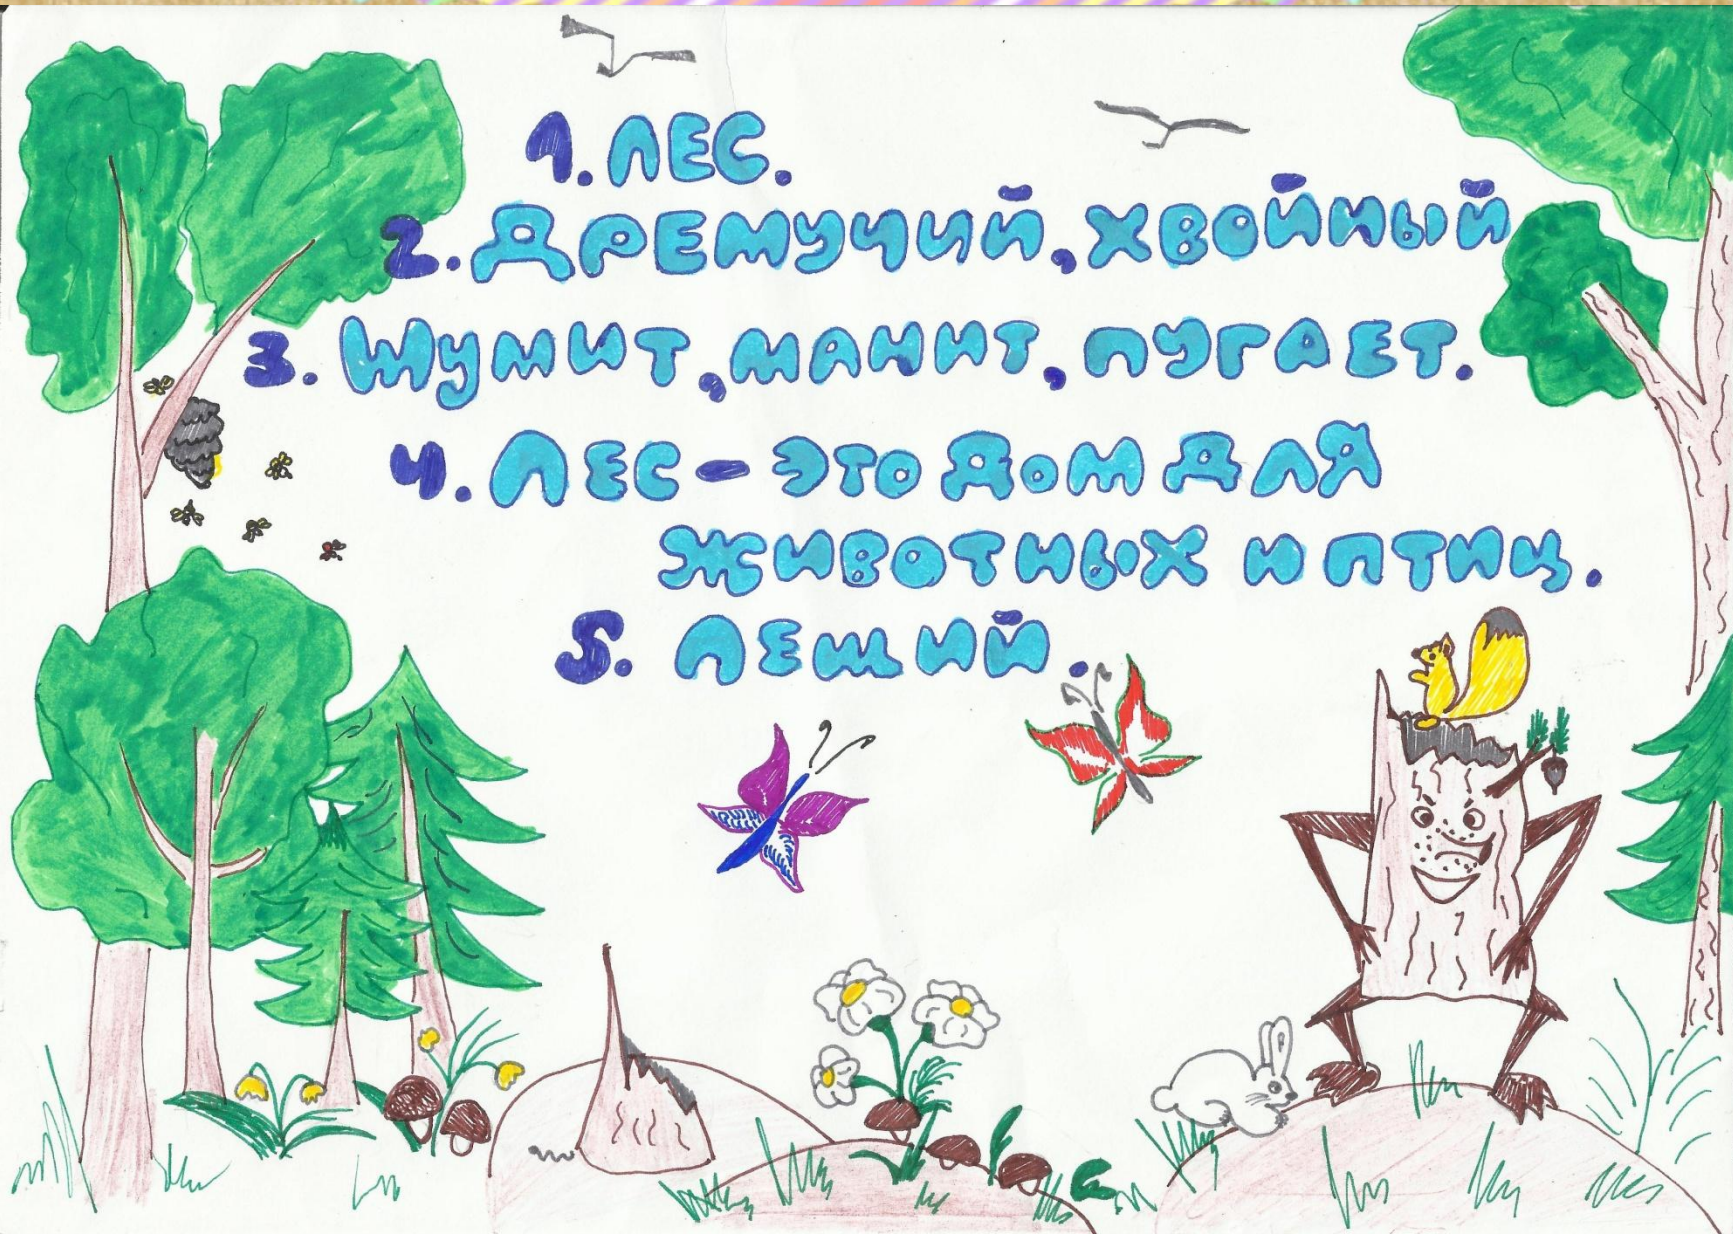 1. ЛЕС.
2. ДРЕМУЧИЙ, ХВОЙНЫЙ
3. ШУМИТ, МАНИТ, ПУГАЕТ.
4. ЛЕС - ЭТО ДОМ ДЛЯ
ЖИВОТНЫХ И ПТИЦ.
5. ЛЕШИЙ.